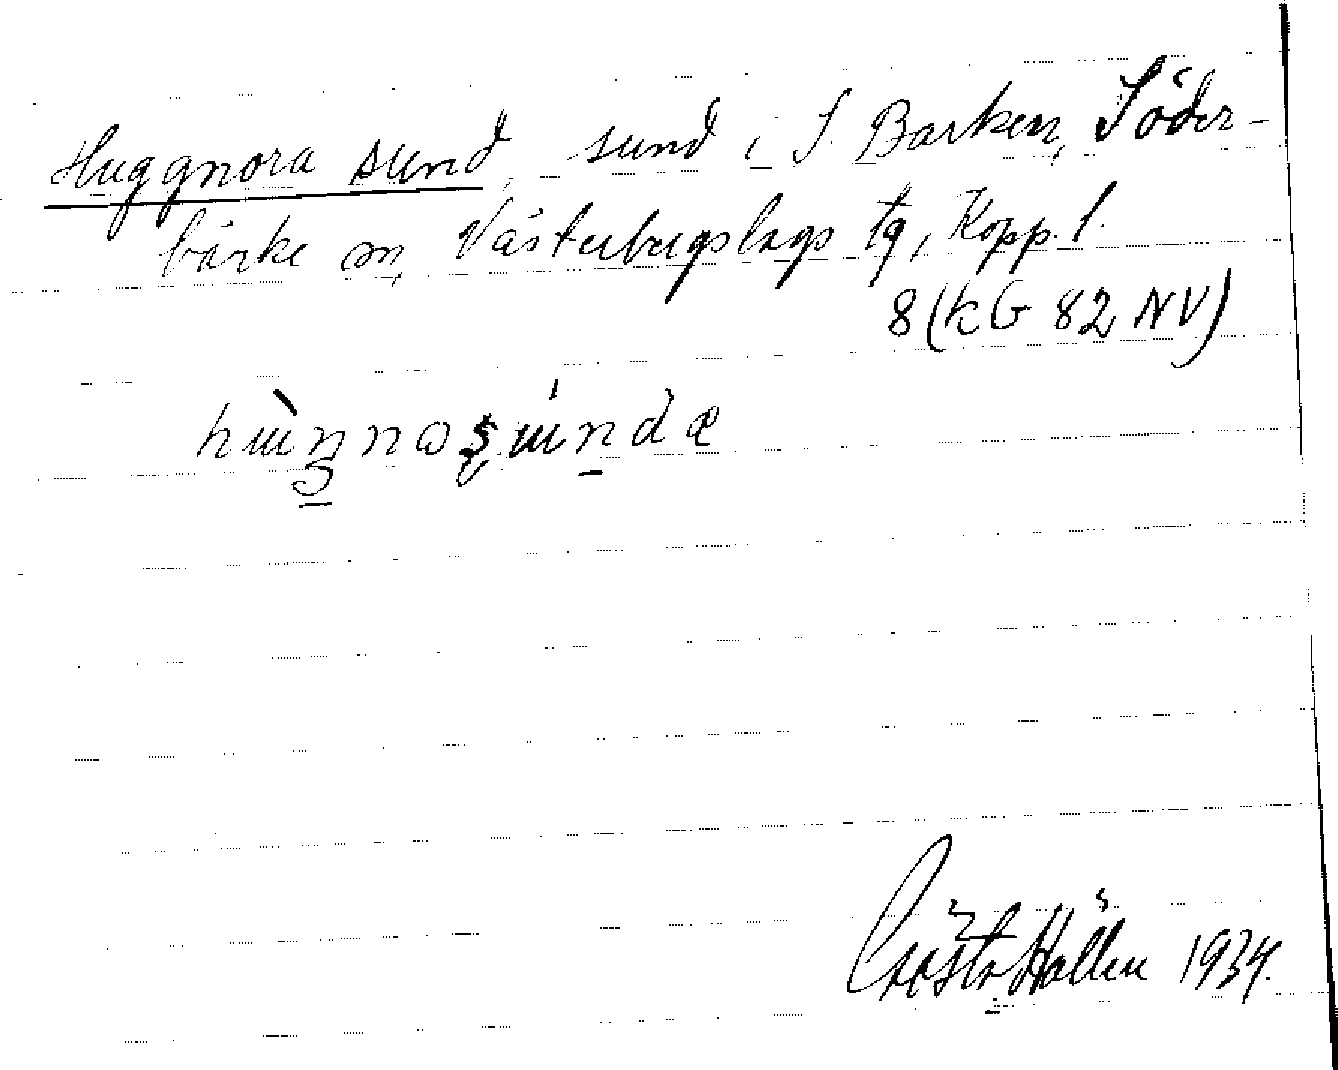 Huggnora sund, sund i S. Barken, Söder-
bärke sn, Västerbergslags tg, Kopp. l.
8 (kG 82 NV)
Gösta Hallén 1934.